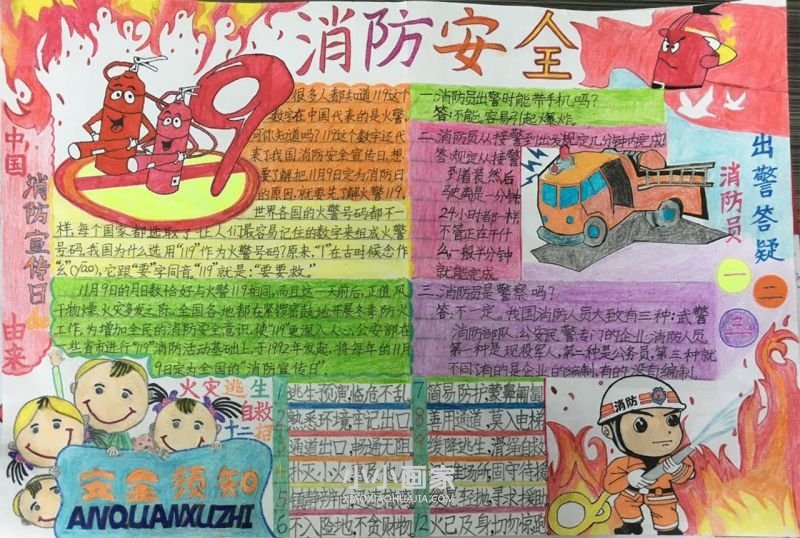 消防安全
中国消防宣传日由来
很多人都知道119这个
数字在中国代表的是火警,
可你知道吗?119这个数字还代
表了我国消防安全宣传日,想
要了解把11月9日定为消防日
的原因,就要先了解火警119.
世界各国的火警号码都不一
样,每个国家都选取了让人们最容易记住的数字来组成火警
号码,我国为什么选用"119"作为火警号码?原来,"1"在古时候念作
"幺"(yāo),它跟"要"字同音,"119"就是:"要要救."
11月9日的月日数恰好与火警119相同,而且这一天前后,正值风
干物燥、火灾多发之际,全国各地都在紧锣密鼓地开展冬季防火
工作.为增加全民的消防安全意识,使"119"更深入人心,公安部在
一些省市进行"119"消防活动基础上,于1992年发起,将每年的11月
9日定为全国的"消防宣传日"
出警答疑
消防员
一
二
三
一.消防员出警时能带手机吗?
答:不能,容易引起爆炸.
二.消防员从接警到出发规定几分钟内完成?
答:规定从接警
到着装,然后
驶离是一分钟
24小时都一样
不管正在干什
么,一般半分钟
就能完成
三.消防员是警察吗?
答:不一定。我国消防人员大致有三种:武警
消防部队、公安民警、专门的企业消防人员.
第一种是现役军人,第二种是公务员,第三种就
不同了,有的是企业的编制,有的没有编制.
火灾逃生
自救
十二招
安全须知
ANQUANXUZHI
1 逃生预演,临危不乱
2 熟悉环境,牢记出口
3 通道出口,畅通无阻
4 扑灭小火,
5 镇静
6 不入险地,不贪财物
7 简易防护,蒙鼻匍匐
8 善用通道,莫入电梯
9 缓降逃生,滑绳自救
固守待援
轻抛,寻求援助
12 火已及身,切勿惊跑
消防
小小画家
XIAOXIAOHUAJIA.COM